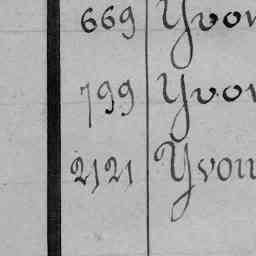 669 Yvon
799 Yvon
2121 Yvon